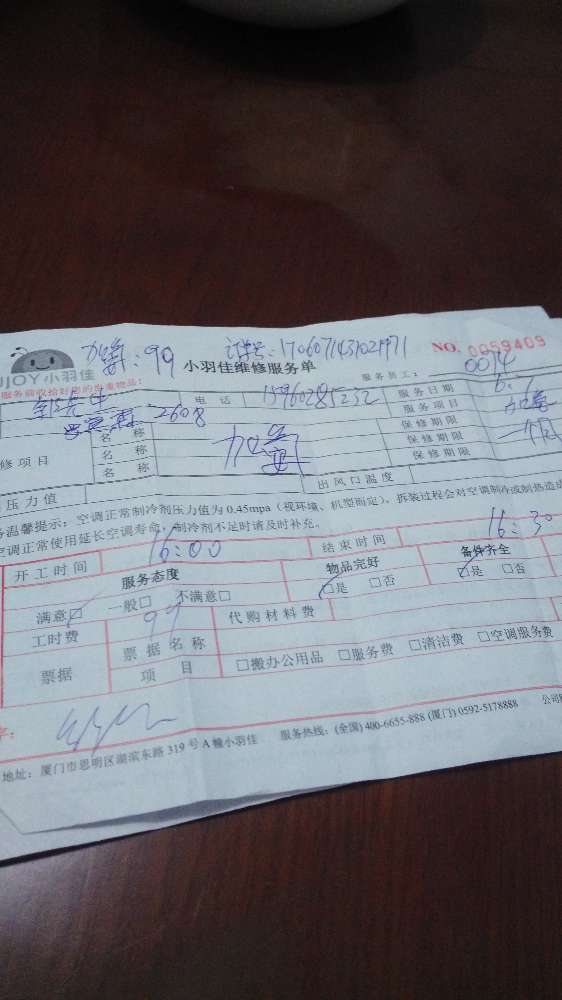 加氟:99 订单号:1706071431021971
NO. 0059409
JOY小羽佳 小羽佳维修服务单 服务员工: 0014
服务前收拾好您的贵重物品:
郭先生 电话 13960285232 服务日期 6.
2608 服务项目 加氟
名称 保修期限
修项目 名称 加氟 保修期限 一个月
名称 保修期限
压力值 出风口温度
务温馨提示:空调正常制冷剂压力值为0.45mpa(视环境、机型而定)。拆装过程会对空调制冷或制热造成
空调正常使用延长空调寿命,制冷剂不足时请及时补充。
开工时间 16:00 结束时间 16:30
服务态度 物品完好 备件齐全
满意□ 一般□ 不满意□ □是 □否 □是 □否
工时费 99 代购材料费
票据 票据名称
项目 □搬办公用品 □服务费 □清洁费 □空调服务费
字:
地址:厦门市思明区湖滨东路319号A幢小羽佳 服务热线:(全国)400-6655-888(厦门)0592-5178888 公司